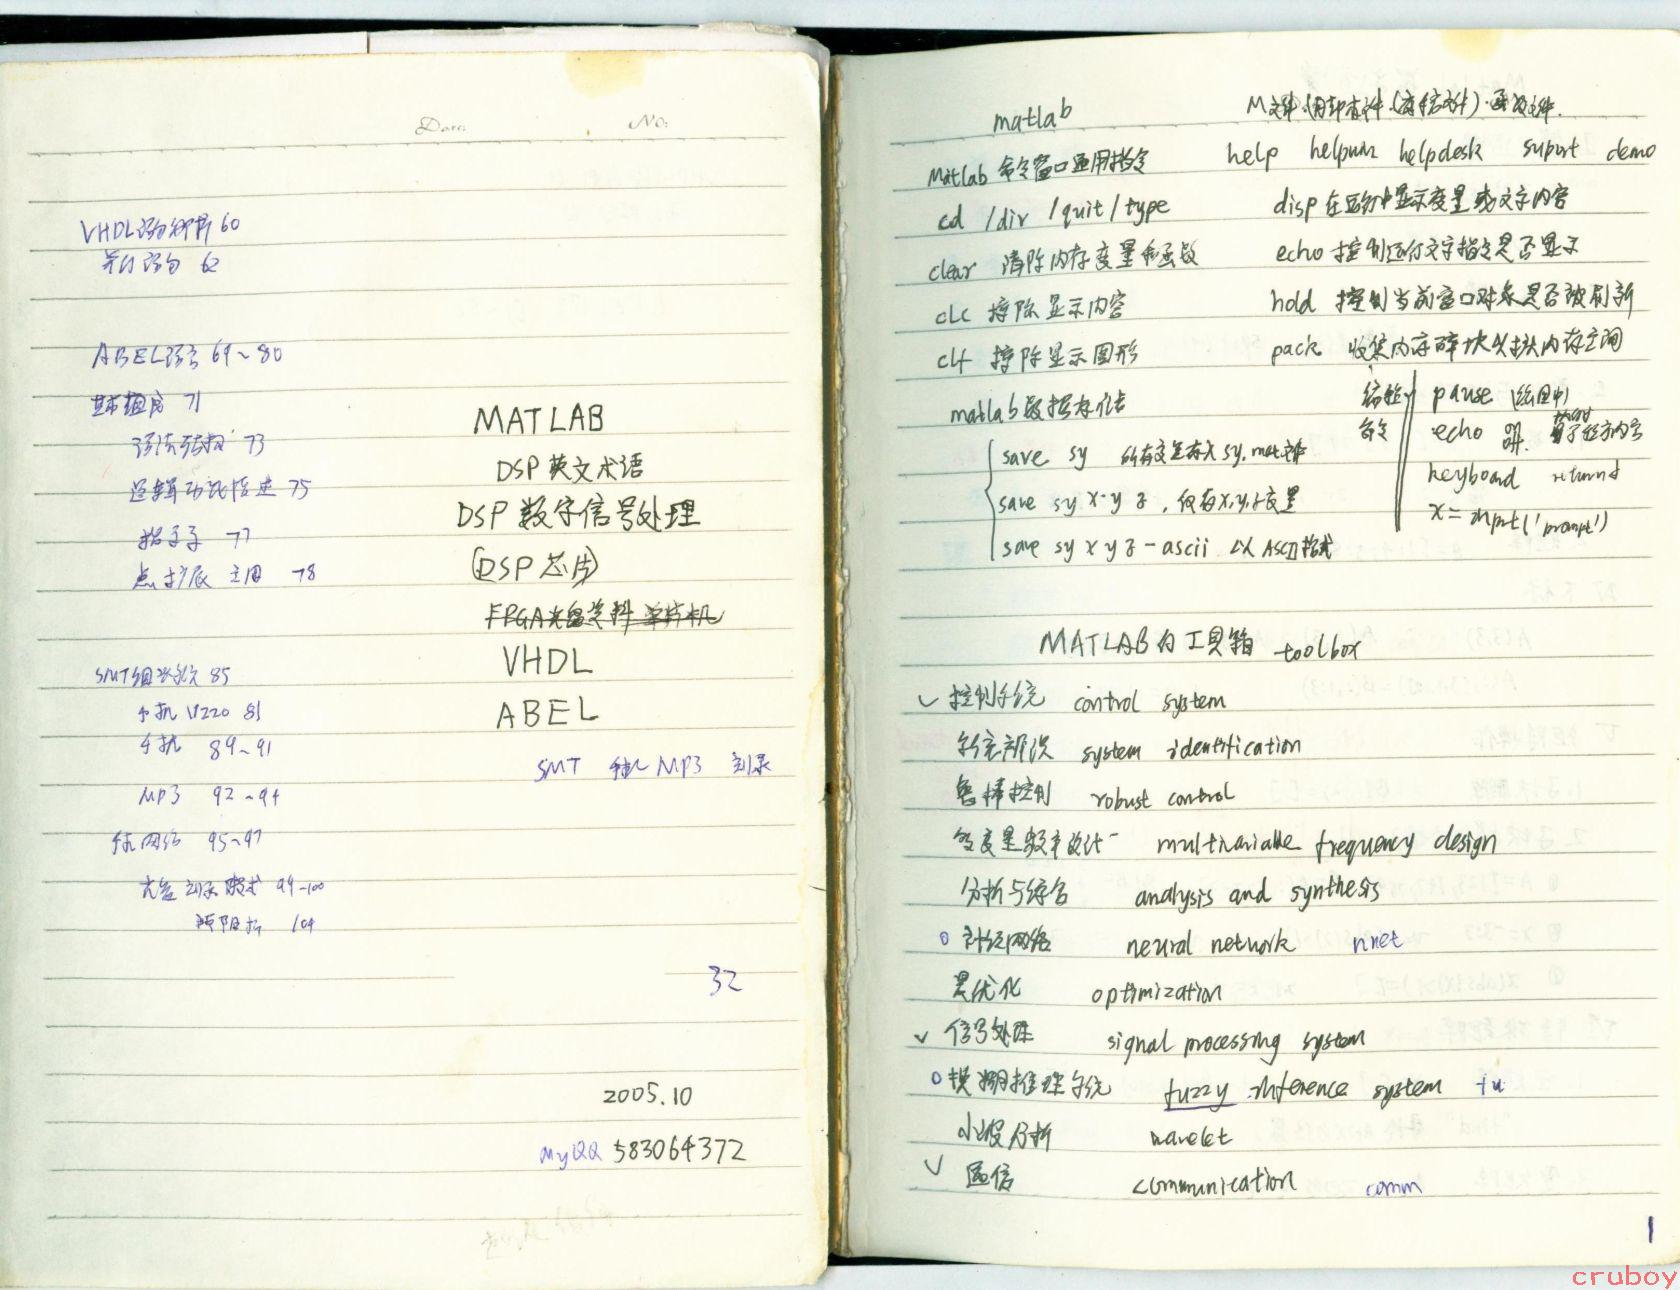 Date: No:
VHDL语句 60
并行语句 62
ABEL语言 69~80
基本程序 71
语法结构 73
逻辑功能描述 75
指示字 77
点扩展 78
SMT 85
手机 U220 81
手机 89~91
MP3 92~94
网络 95~97
光盘刻录技术 99~100
104
MATLAB
DSP英文术语
DSP 数字信号处理
(DSP芯片)
FPGA光盘资料 单片机
VHDL
ABEL
SMT 手机 MP3 刻录
32
2005.10
MyQQ 583064372
matlab M文件
Matlab 命令窗口通用指令 help helpwin helpdesk suport demo
cd /dir /quit /type disp 在运行中显示变量或文字内容
clear 清除内存变量和函数 echo 控制运行文字指令是否显示
clc 擦除显示内容 hold 控制当前窗口对象是否被刷新
clf 擦除显示图形 pack 收集内存碎块以扩大内存空间
matlab数据存储
save sy 所有变量存入sy.mat文件
save sy x y z , 仅存x,y,z变量
save sy x y z -ascii 以ASCII格式
命令
pause
echo
keyboard return
x = input('prompt')
MATLAB的工具箱 toolbox
✓ 控制系统 control system
系统辨识 system identification
鲁棒控制 robust control
多变量频率设计 multivariable frequency design
分析与综合 analysis and synthesis
○ 神经网络 neural network nnet
最优化 optimization
✓ 信号处理 signal processing system
○ 模糊推理系统 fuzzy inference system fu
小波分析 wavelet
✓ 通信 communication comm
1
cruboy